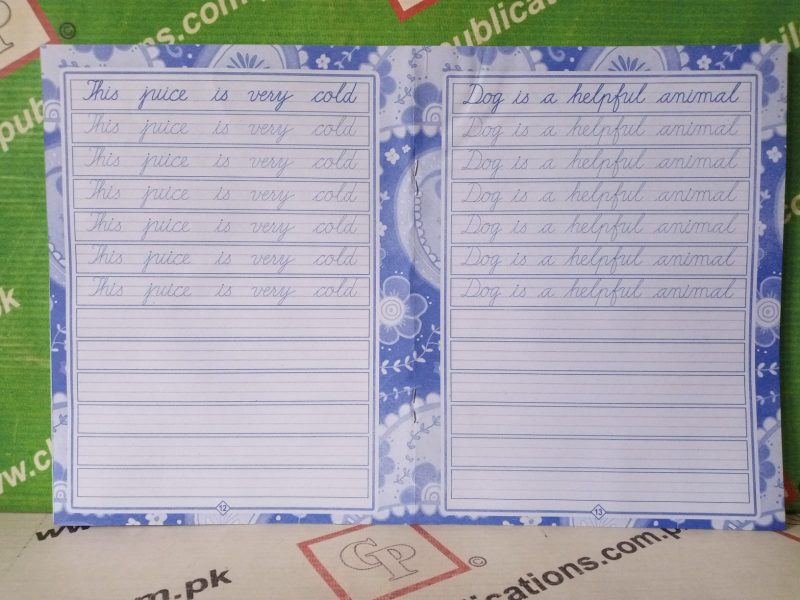 publications.com.pk
This juice is very cold
This juice is very cold
This juice is very cold
This juice is very cold
This juice is very cold
This juice is very cold
This juice is very cold
12
Dog is a helpful animal
Dog is a helpful animal
Dog is a helpful animal
Dog is a helpful animal
Dog is a helpful animal
Dog is a helpful animal
Dog is a helpful animal
13
GP
©